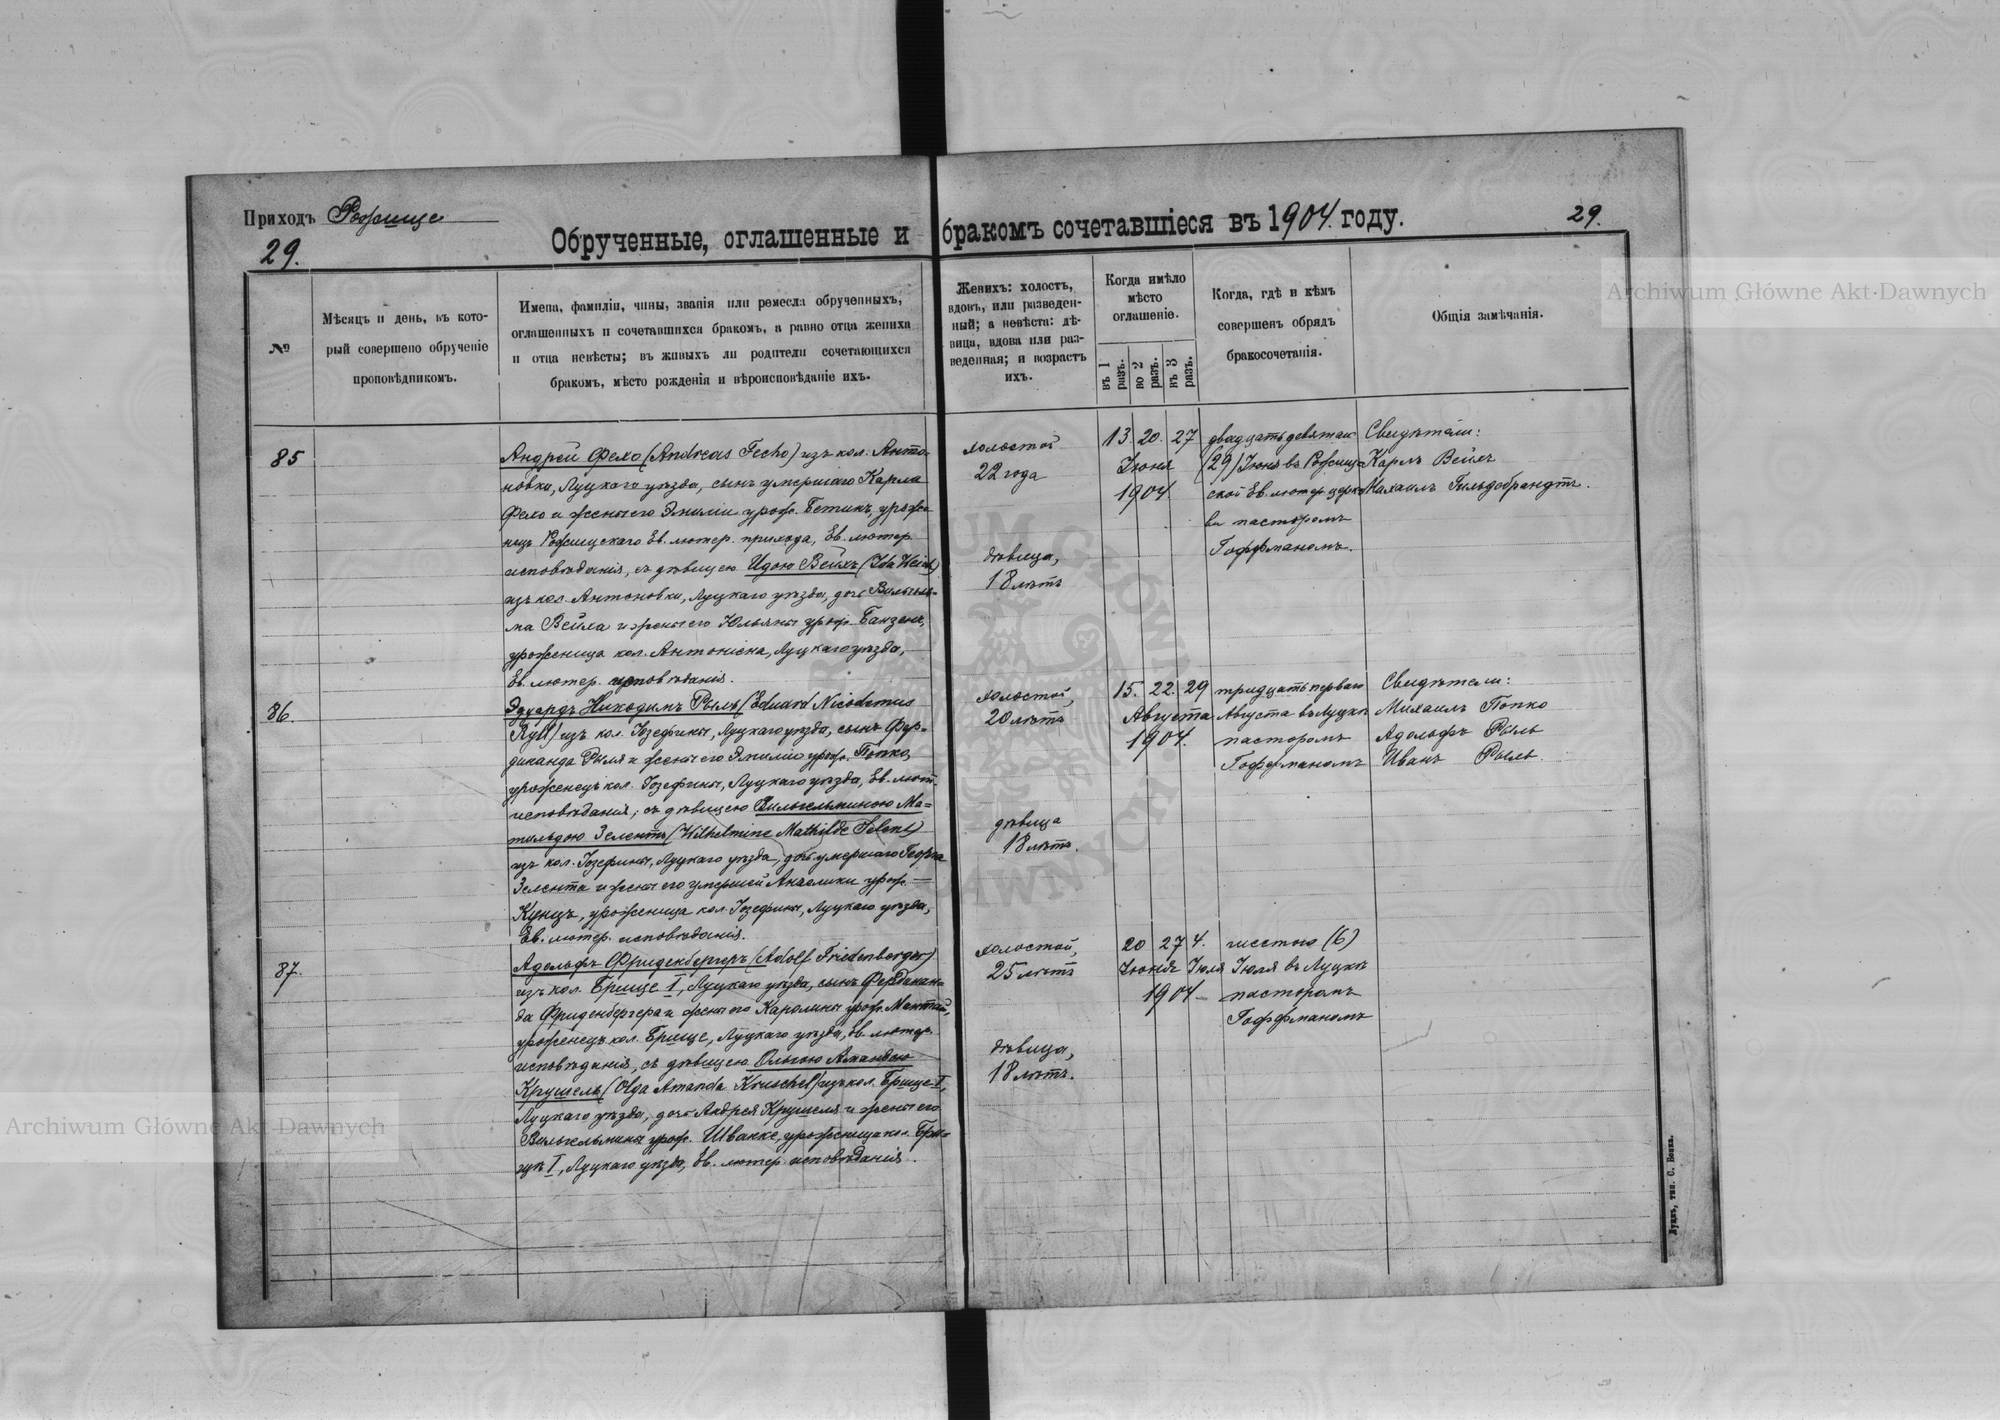 Приходъ Рожище
29.
Обрученные, оглашенные и бракомъ сочетавшіеся въ 1904. году.
29.
№
Мѣсяцъ и день, въ кото-
рый совершено обрученіе
проповѣдникомъ.
Имена, фамиліи, чины, званія или ремесла обрученныхъ,
оглашенныхъ и сочетавшихся бракомъ, а равно отца жениха
и отца невѣсты; въ живыхъ ли родители сочетающихся
бракомъ, мѣсто рожденія и вѣроисповѣданіе ихъ.
Женихъ: холостъ,
вдовъ, или разведен-
ный; а невѣста: дѣ-
вица, вдова или раз-
веденная; и возрастъ
ихъ.
Когда имѣло
мѣсто
оглашеніе.
въ 1 разъ.
во 2 разъ.
въ 3 разъ.
Когда, гдѣ и кѣмъ
совершенъ обрядъ
бракосочетанія.
Общія замѣчанія.
85
Андрей Фехо (Andreas Fecho) изъ кол. Анто-
новки, Луцкаго уѣзда, сынъ умершаго Карла
Фехо и жены его Эмиліи урож. Бетинъ, уроже-
нецъ Рожищскаго Ев. лютер. прихода, Ев. лютер.
исповѣданія, съ дѣвицею Идою Вейхъ (Ida Weich)
изъ кол. Антоновки, Луцкаго уѣзда, дочь Вильгель-
ма Вейха и жены его Юльяны урож. Банзенъ,
уроженица кол. Антонісна, Луцкаго уѣзда,
Ев. лютер. исповѣданія.
холостой
22 года
дѣвица,
18 лѣтъ
13. 20. 27
Іюня
1904.
двадцать девятаго
(29) Іюня въ Рожищ-
ской Ев. лютер. церк-
ви пасторомъ
Гоффманомъ.
Свидѣтели:
Карлъ Вейхъ
Михаилъ Гильдебрандтъ.
86.
Эдуардъ Никодимъ Рыль (Eduard Nicodemus
Ryll) изъ кол. Іозефины, Луцкаго уѣзда, сынъ Фер-
динанда Рыля и жены его Эмиліи урож. Попко,
уроженецъ кол. Іозефины, Луцкаго уѣзда, Ев. лют.
исповѣданія; съ дѣвицею Вильгельминою Ма-
тильдою Зелентъ (Wilhelmine Mathilde Selent)
изъ кол. Іозефины, Луцкаго уѣзда, дочь умершаго Георга
Зелента и жены его умершей Анжелики урож.
Кунцъ, уроженица кол. Іозефины, Луцкаго уѣзда,
Ев. лютер. исповѣданія.
холостой,
20 лѣтъ
дѣвица
18 лѣтъ.
15. 22. 29
Августа
1904.
тридцать перваго
Августа въ Луцкѣ
пасторомъ
Гоффманомъ
Свидѣтели:
Михаилъ Попко
Адольфъ Рыль
Иванъ Рыль.
87.
Адольфъ Фриденбергеръ (Adolf Friedenberger)
изъ кол. Брище I, Луцкаго уѣзда, сынъ Фердинан-
да Фриденбергера и жены его Каролины урож. Мантай,
уроженецъ кол. Брище, Луцкаго уѣзда, Ев. лютер.
исповѣданія, съ дѣвицею Ольгою Амандою
Крушель (Olga Amanda Kruschel) изъ кол. Брище I,
Луцкаго уѣзда, дочь Андрея Крушеля и жены его
Вильгельмины урож. Шванке, уроженица кол. Бри-
щи I, Луцкаго уѣзда, Ев. лютер. исповѣданія.
холостой,
25 лѣтъ
дѣвица,
18 лѣтъ.
20 27 4.
Іюня Іюля
1904
шестого (6)
Іюля въ Луцкѣ
пасторомъ
Гоффманомъ
Луцкъ, тип. С. Бокка.
Archiwum Główne Akt Dawnych
Archiwum Główne Akt Dawnych